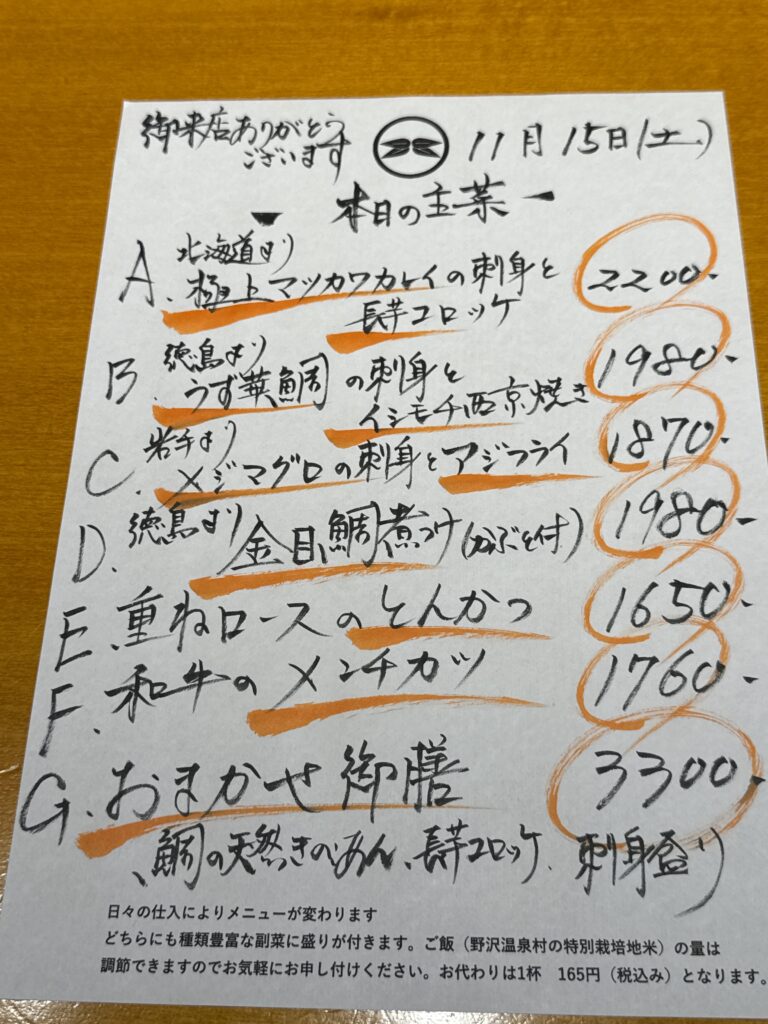 御来店ありがとう
ございます
11月15日(土)
本日の主菜
A. 北海道より
極上マツカワカレイの刺身と
長芋コロッケ
2200.
B. 徳島より
うず華鯛の刺身と
イシモチ西京焼き
1980.
C. 岩手より
メジマグロの刺身とアジフライ
1870.
D. 徳島より
金目鯛煮つけ(かぶと付)
1980.
E. 重ねロースのとんかつ
1650.
F. 和牛のメンチカツ
1760.
G. おまかせ御膳
3300.
鯛の天然きのこあん、長芋コロッケ、刺身盛り
日々の仕入によりメニューが変わります
どちらにも種類豊富な副菜に盛りが付きます。ご飯(野沢温泉村の特別栽培地米)の量は
調節できますのでお気軽にお申し付けください。お代わりは1杯 165円(税込み)となります。